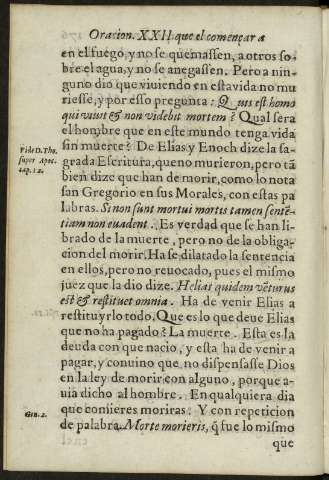 Oracion. XXII. que el començar a
en el fuego, y no se quemassen, a otros so-
bre el agua, y no se anegassen. Pero a nin-
guno dio que viuiendo en esta vida no mu
riesse, y por esso pregunta: Quis est homo
qui viuit & non videbit mortem? Qual sera
el hombre que en este mundo tenga vida
sin muerte? De Elias y Enoch dize la sa-
Vide D. Tho.
super Apoc.
cap. 12.
grada Escritura, que no murieron, pero tā
bien dize que han de morir, como lo nota
san Gregorio en sus Morales, con estas pa
labras. Si non sunt mortui mortis tamen sentē-
tiam non euadent. Es verdad que se han li-
brado de la muerte, pero no de la obliga-
cion del morir. Ha se dilatado la sentencia
en ellos, pero no reuocado, pues el mismo
juez que la dio dize. Helias quidem vēturus
est & restituet omnia. Ha de venir Elias a
restituyrlo todo. Que es lo que deue Elias
que no ha pagado? La muerte. Esta es la
deuda con que nacio, y esta ha de venir a
pagar, y conuino que no dispensasse Dios
en la ley de morir con alguno, porque a-
uia dicho al hombre. En qualquiera dia
Gen. 2.
que comieres moriras: Y con repeticion
de palabra. Morte morieris, q̄ fue lo mismo
que